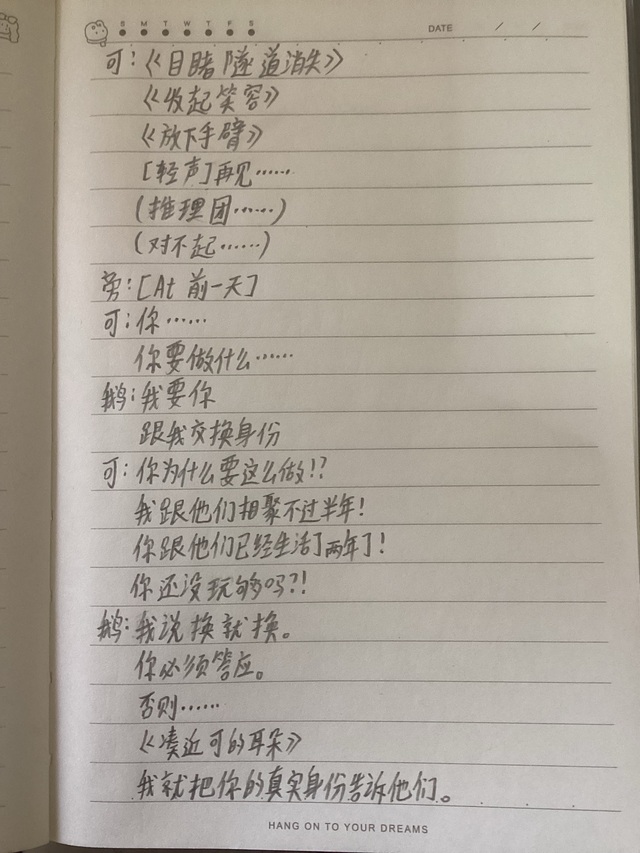 S M T W T F S
DATE / /
可:《目睹隧道消失》
《收起笑容》
《放下手臂》
[轻声]再见……
(推理团……)
(对不起……)
旁:[At 前一天]
可:你……
你要做什么……
鹅:我要你
跟我交换身份
可:你为什么要这么做!?
我跟他们相聚不过半年!
你跟他们已经生活了两年了!
你还没玩够吗?!
鹅:我说换就换。
你必须答应。
否则……
《凑近可的耳朵》
我就把你的真实身份告诉他们。
HANG ON TO YOUR DREAMS